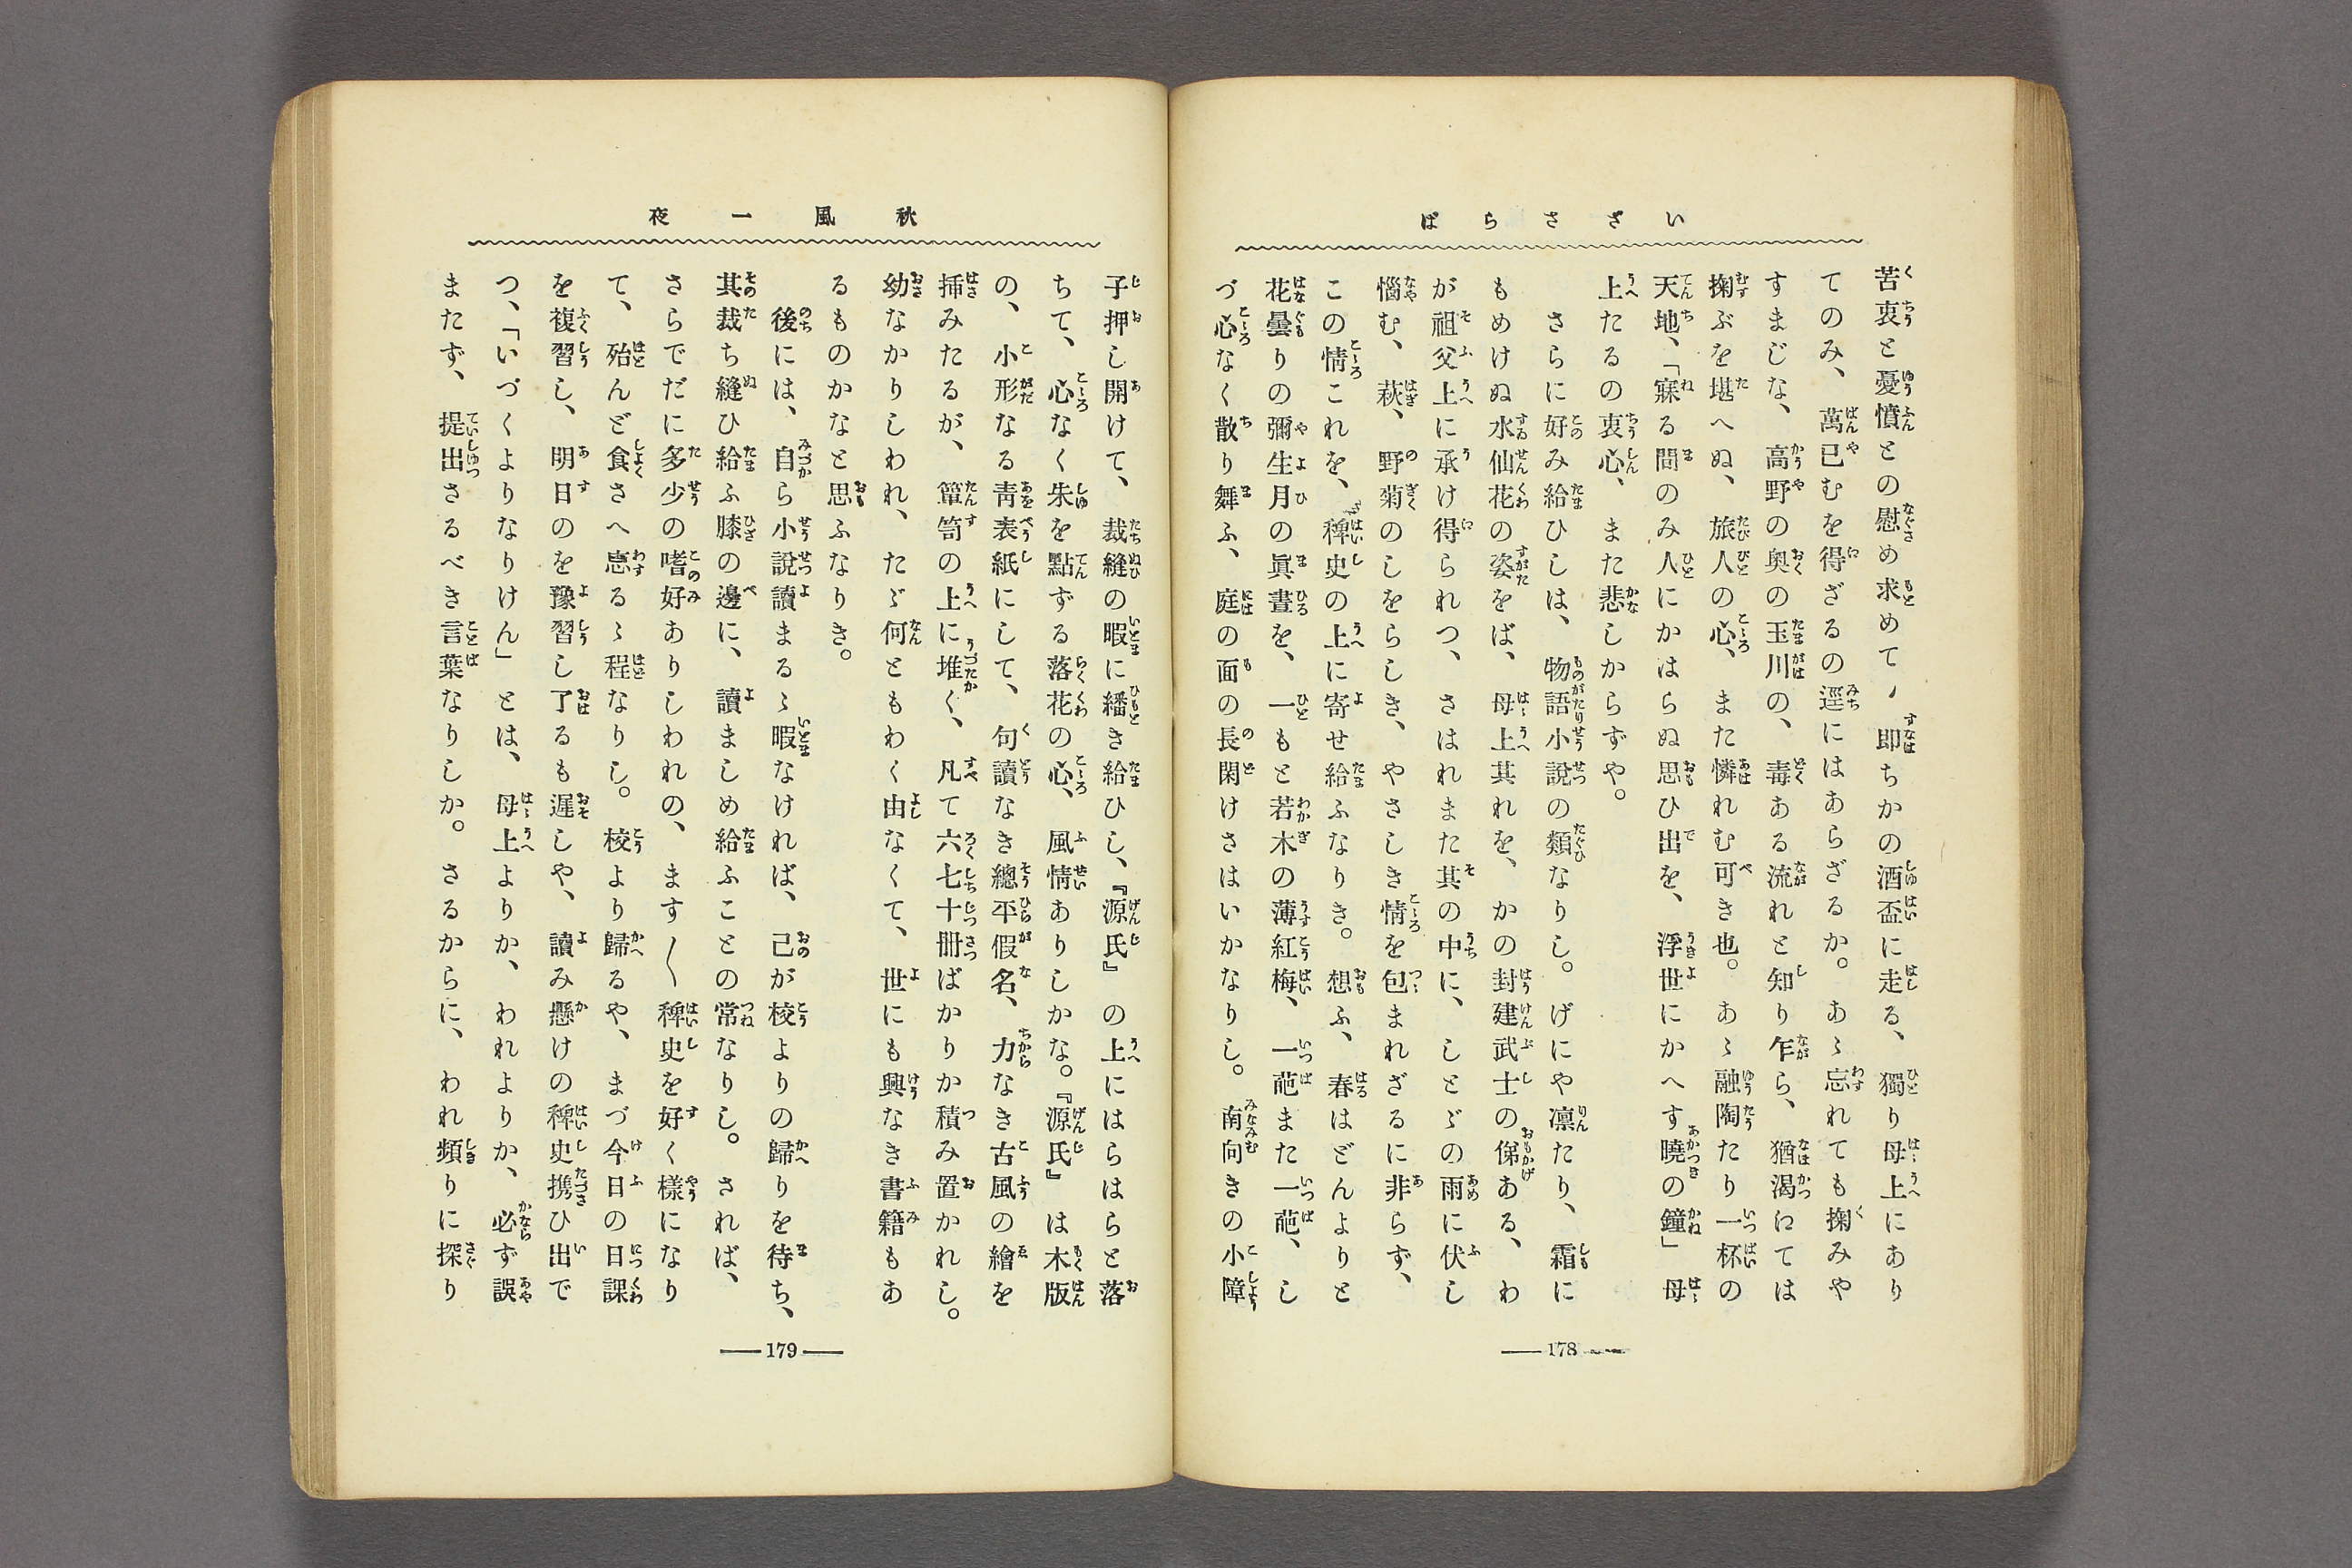 いざさらば
苦衷と憂憤との慰め求めて、即ちかの酒盃に走る、獨り母上にあり
てのみ、萬已むを得ざるの逕にはあらざるか。あゝ忘れても掬みや
すまじな、高野の奥の玉川の、毒ある流れと知り乍ら、猶渇にては
掬ぶを堪へぬ、旅人の心、また憐れむ可き也。あゝ融陶たり一杯の
天地、「寐る間のみ人にかはらぬ思ひ出を、浮世にかへす曉の鐘」母
上たるの衷心、また悲しからずや。
さらに好み給ひしは、物語小說の類なりし。げにや凛たり、霜に
もめけぬ水仙花の姿をば、母上其れを、かの封建武士の俤ある、わ
が祖父上に承け得られつ、さはれまた其の中に、しとゞの雨に伏し
惱む、萩、野菊のしをらしき、やさしき情を包まれざるに非らず、
この情これを、稗史の上に寄せ給ふなりき。想ふ、春はどんよりと
花曇りの彌生月の眞晝を、一もと若木の薄紅梅、一葩また一葩、し
づ心なく散り舞ふ、庭の面の長閑けさはいかなりし。南向きの小障
178
秋風一夜
子押し開けて、裁縫の暇に繙き給ひし、『源氏』の上にはらはらと落
ちて、心なく朱を點ずる落花の心、風情ありしかな。『源氏』は木版
の、小形なる靑表紙にして、句讀なき總平假名、力なき古風の繪を
挿みたるが、簞笥の上に堆く、凡て六七十册ばかりか積み置かれし。
幼なかりしわれ、たゞ何ともわく由なくて、世にも興なき書籍もあ
るものかなと思ふなりき。
後には、自ら小說讀まるゝ暇なければ、己が校よりの歸りを待ち、
其裁ち縫ひ給ふ膝の邊に、讀ましめ給ふことの常なりし。されば、
さらでだに多少の嗜好ありしわれの、ます〱稗史を好く樣になり
て、殆んど食さへ忘るゝ程なりし。校より歸るや、まづ今日の日課
を複習し、明日のを豫習し了るも遲しや、讀み懸けの稗史携ひ出で
つ、「いづくよりなりけん」とは、母上よりか、われよりか、必ず誤
またず、提出さるべき言葉なりしか。さるからに、われ頻りに探り
179